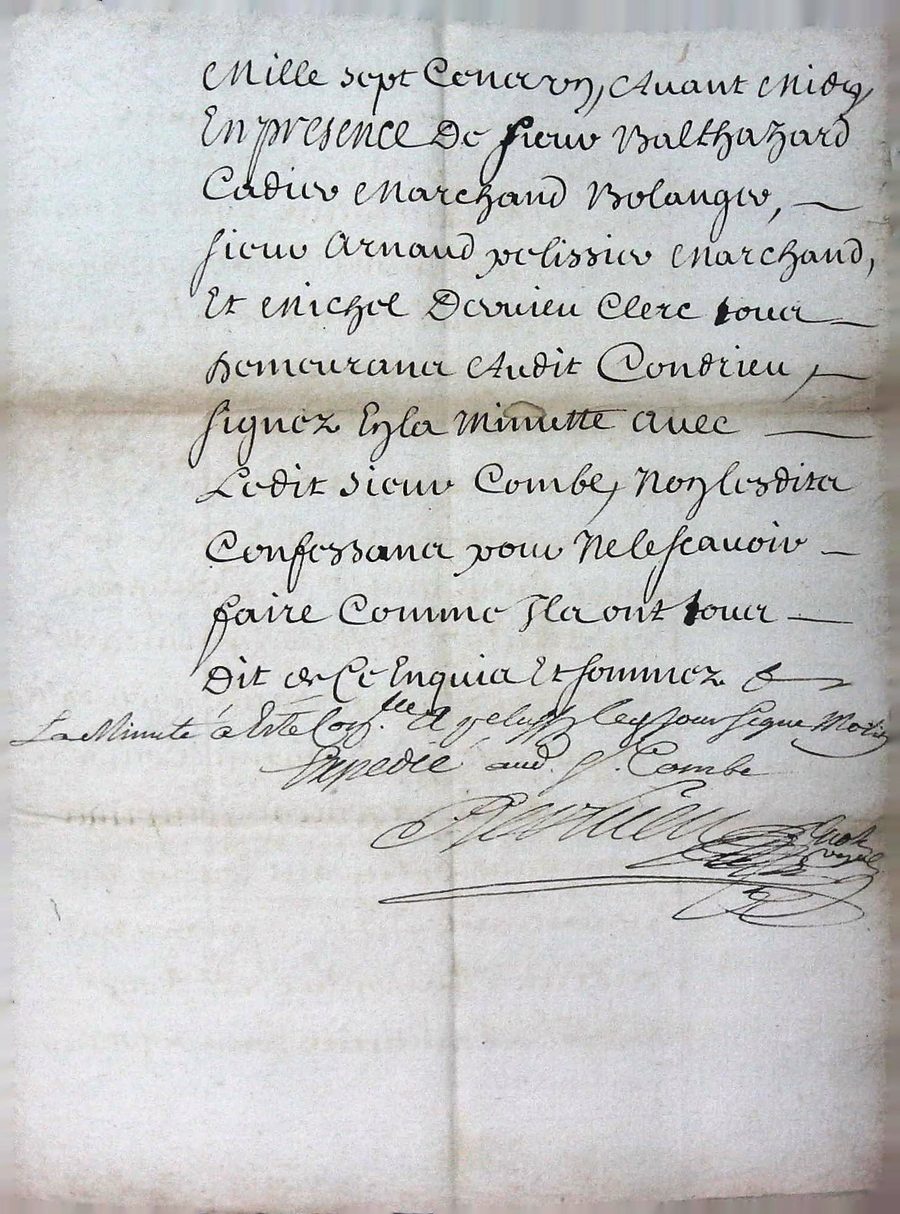 Mille sept Cens un, Avant Midy
En presence De sieur Balthazard
Cadier Marchand Bolanger,
sieur Arnaud pelissier Marchand,
Et Michel Dervieu Clerc tous
Demeurans Audit Condrieu,
signez En la Minutte avec
Ledit sieur Combe, Non lesdits
Confessans pour Ne le scavoir
faire Comme Ils ont tous
dit de Ce Enquis Et sommez
La Minute a Esté
Expedié aud. Sr. Combe
Dervieu